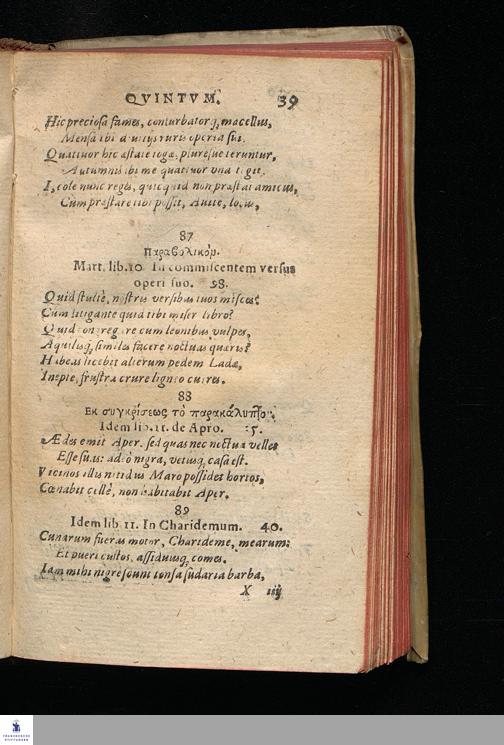 QVINTVM. 39
Hic preciosa fames, conturbatorq́, macellus,
Mensa ibi diuitijs ruris operta sui.
Quattuor hic æstate togæ, pluresue teruntur,
Autumnis ibi me quattuor vna tegit.
I, cole nunc reges, quicquid non præstat amicus,
Cum præstare tibi possit, Auite, locus,
87
Παραβολικόν.
Mart. lib. 10. In commiscentem versus
operi suo. 98.
Quid stulte, nostris versibus tuos misces?
Cum litigante quid tibi miser libro?
Quid congregare cum leonibus vulpes,
Aquilisq́, similes facere noctuas quæris?
Habeas licebit alterum pedem Ladæ,
Inepte, frustra crure ligneo curres.
88
Εκ συγκρίσεως τὸ παρακάλυπτον.
Idem lib. 11. de Apro. 35.
Ædes emit Aper, sed quas nec noctua vellet
Esse suas: adeò nigra, vetusq́, casa est.
Vicinos illis nitidus Maro possidet hortos,
Cœnabit bellè, non habitabit Aper.
89
Idem lib. 11. In Charidemum. 40.
Cunarum fueras motor, Charideme, mearum:
Et pueri custos, assiduusq́, comes.
Iam mihi nigrescunt tonsa sudaria barba,
X iiij
FRANCKESCHE
STIFTUNGEN